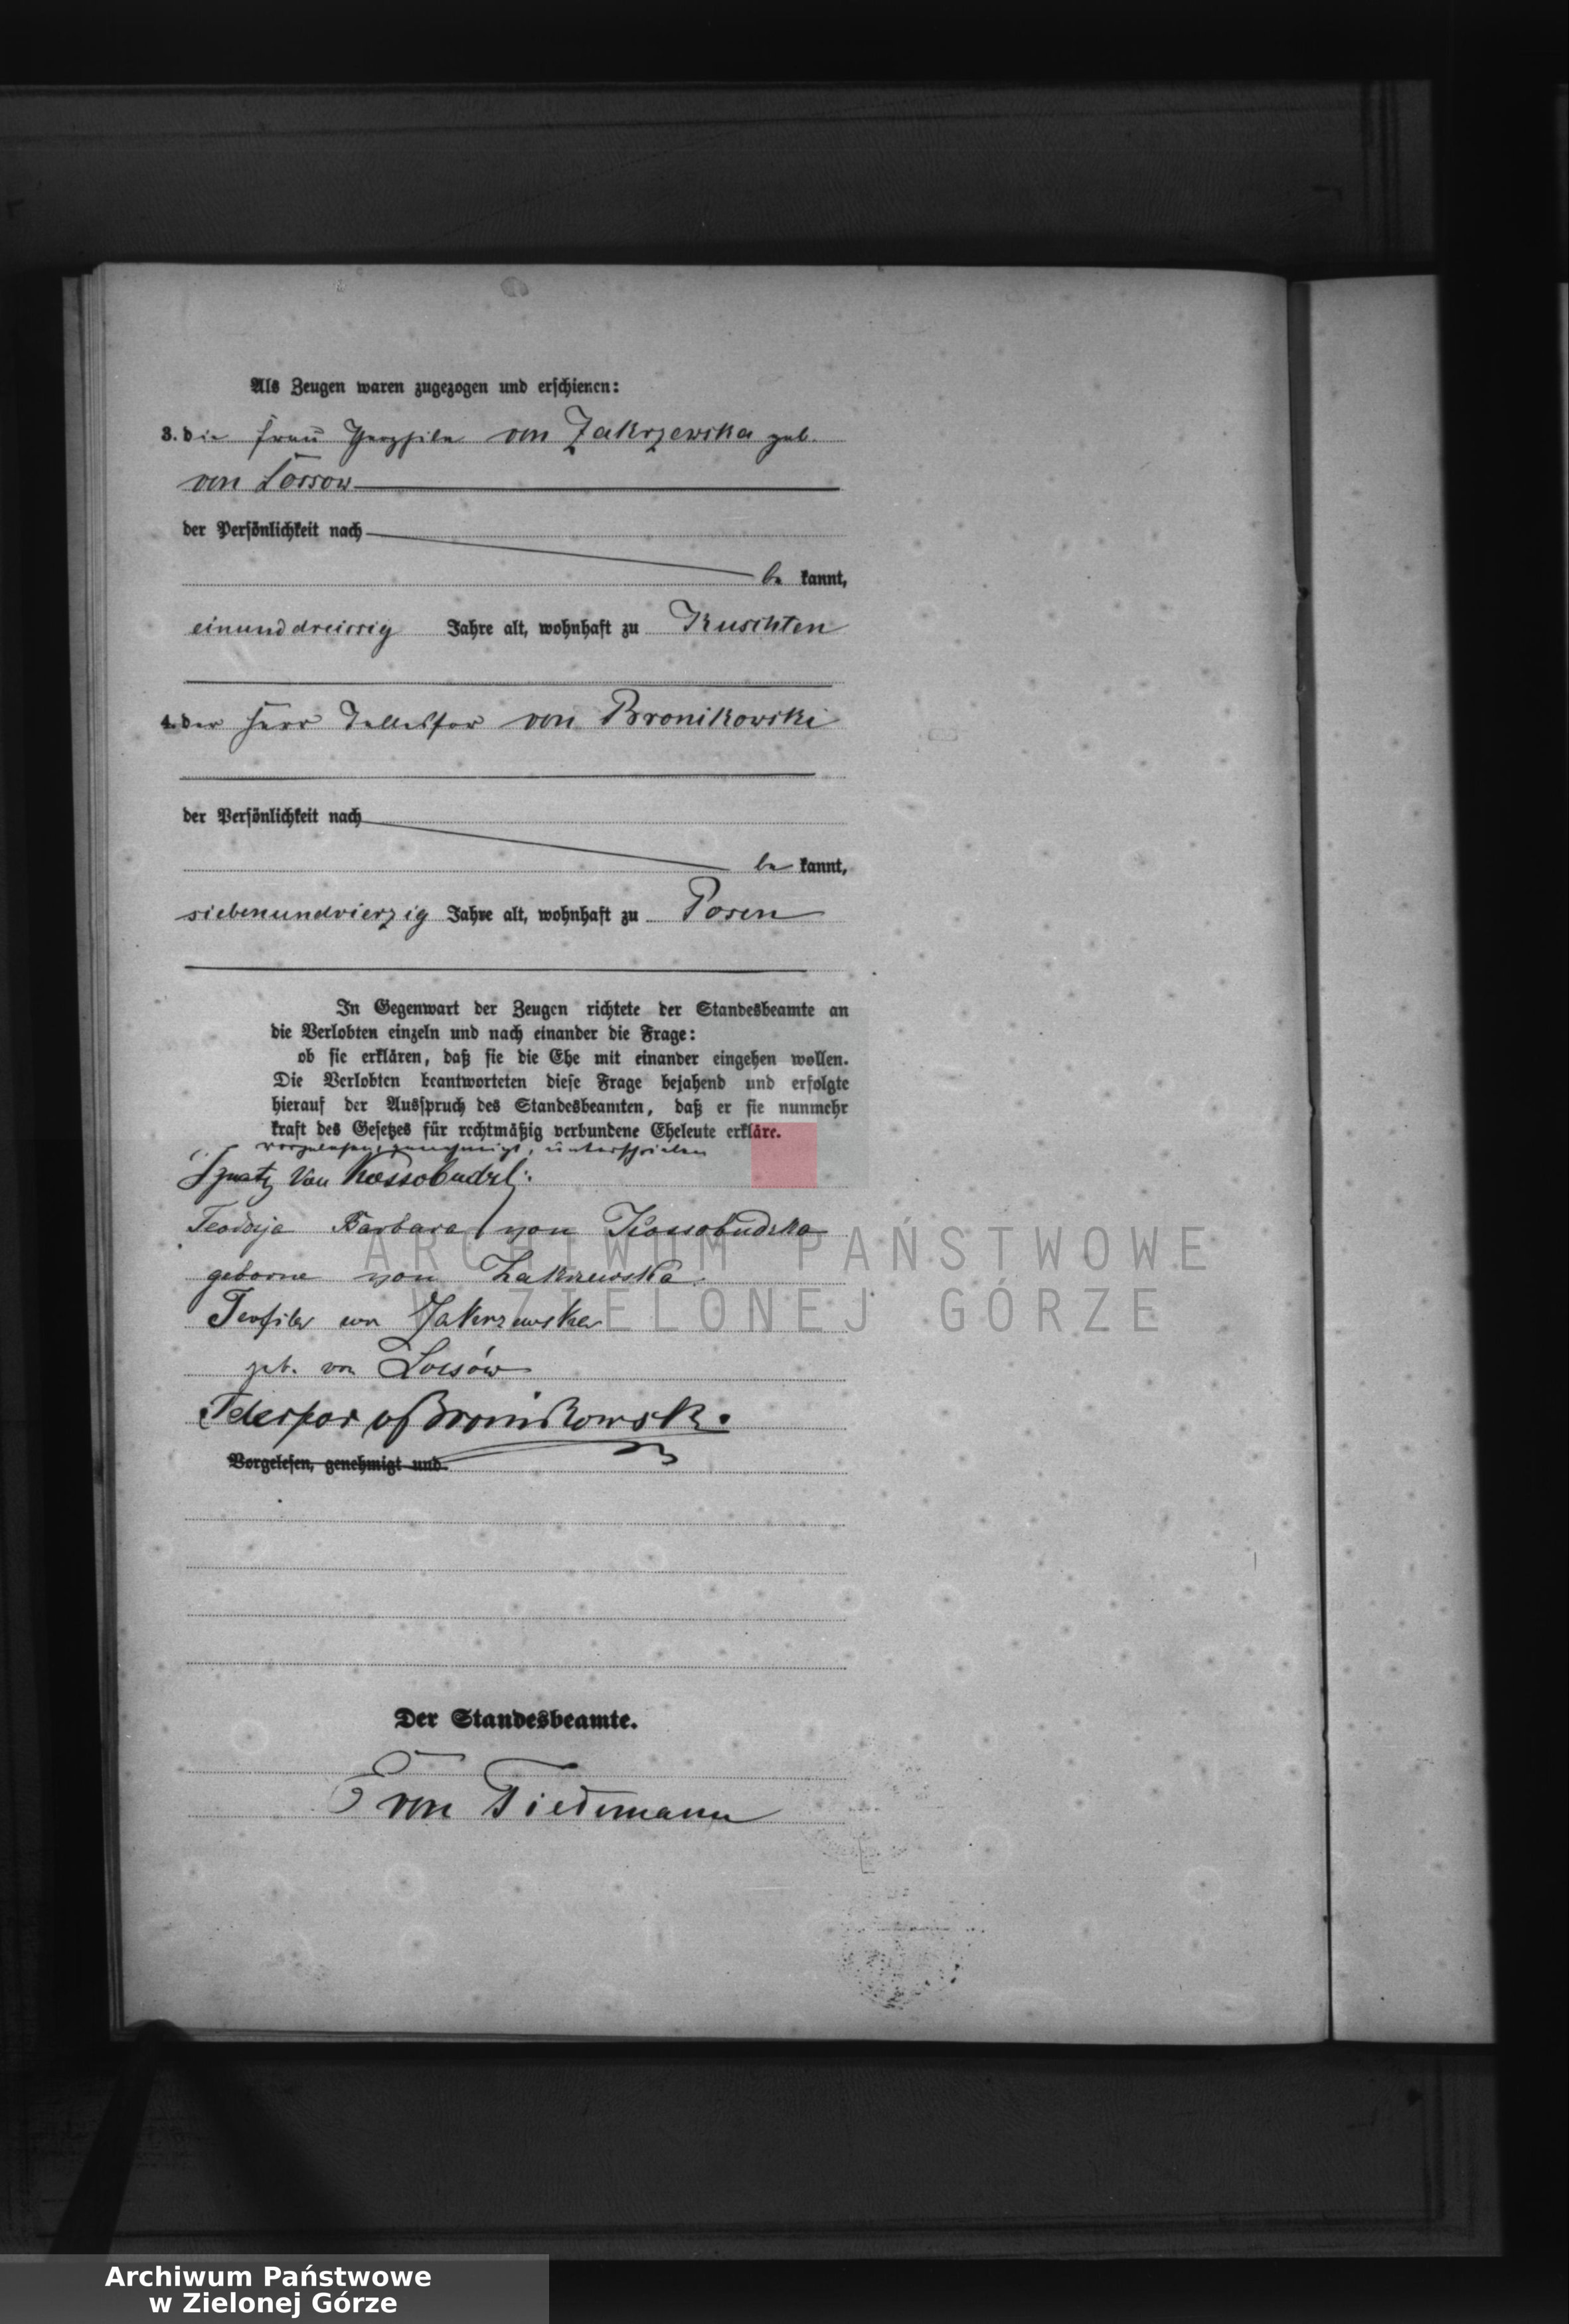 Als Zeugen waren zugezogen und erschienen:
3. die Frau Theophila von Zakrzewska geb.
von Lossow
der Persönlichkeit nach
be kannt,
einunddreissig Jahre alt, wohnhaft zu Kuschten
4. der Herr Telesfor von Bronikowski
der Persönlichkeit nach
be kannt,
siebenundvierzig Jahre alt, wohnhaft zu Posen
In Gegenwart der Zeugen richtete der Standesbeamte an
die Verlobten einzeln und nach einander die Frage:
ob sie erklären, daß sie die Ehe mit einander eingehen wollen.
Die Verlobten beantworteten diese Frage bejahend und erfolgte
hierauf der Ausspruch des Standesbeamten, daß er sie nunmehr
kraft des Gesetzes für rechtmäßig verbundene Eheleute erkläre.
vorgelesen, genehmigt, unterschrieben
Ignatz von Kossobudzki
Teodozja Barbara von Kossobudzka
geborne von Zakrzewska
Teofila von Zakrzewska
geb. von Lossów
Telesfor v Bronikowski
Vorgelesen, genehmigt und
Der Standesbeamte.
von Tiedemann
ARCHIWUM PAŃSTWOWE
W ZIELONEJ GÓRZE
Archiwum Państwowe
w Zielonej Górze